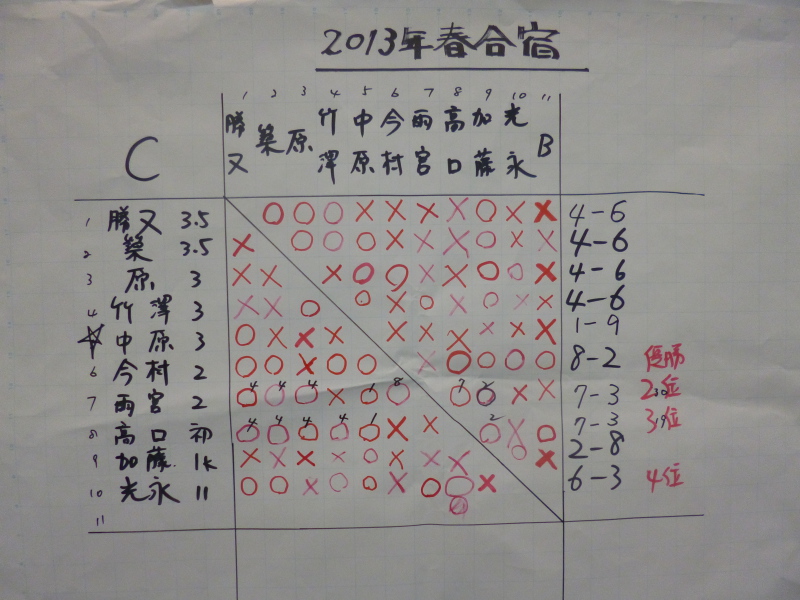 2013年春合宿
C
1 2 3 4 5 6 7 8 9 10 11
勝又 築 原 竹澤 中原 今村 雨宮 高口 加藤 光永 B
1 勝又 3.5 ○ ○ ○ × × × × ○ × × 4-6
2 築 3.5 × ○ ○ ○ × × × ○ × × 4-6
3 原 3 × × × ○ ○ × × ○ ○ × 4-6
4 竹澤 3 × × ○ ○ × ○ × ○ × × 4-6
中原 3 ○ × × × × × × × × × 1-9
6 今村 2 ○ ○ × ○ ○ × ○ ○ ○ ○ 8-2 優勝
7 雨宮 2 ○ ○ ○ × ○ ○ ○ ○ × × 7-3 2位
8 高口 初 ○ ○ ○ ○ ○ × × ○ × ○ 7-3 3位
9 加藤 1k × × × × ○ × × × ○ × 2-8
10 光永 11 ○ ○ × ○ ○ × ○ ○ × 6-3 4位
11